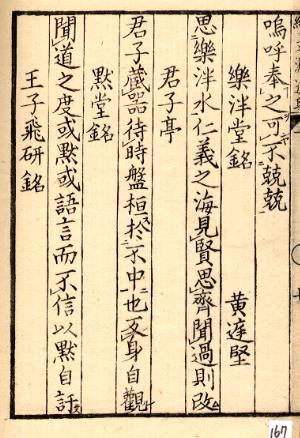 嗚呼奉之可不兢兢
樂泮堂銘　黃遅堅
思樂泮水仁義之海見賢思齊聞過則改
君子亭
君子藏器待時盤桓於不中也反身自觀
默堂銘
聞道之度或默或語言而不信以默自話
王子飛研銘
167